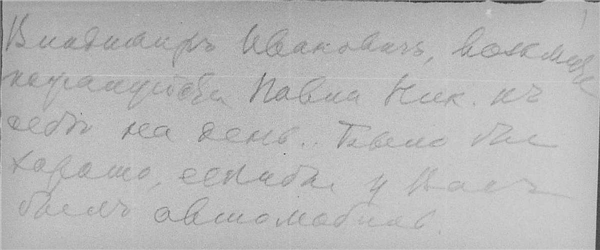 Владимиръ Ивановичъ, возьмите
пожалуйста Павла Ник. къ
себѣ на день. Было бы
хорошо, еслибы у Васъ
былъ автомобиль.